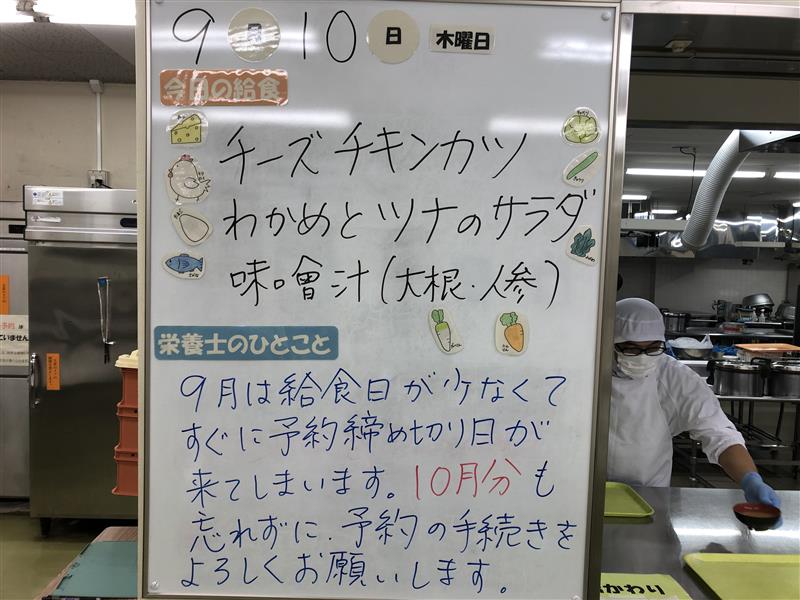 9月10日 木曜日
今日の給食
チーズチキンカツ
わかめとツナのサラダ
味噌汁(大根・人参)
栄養士のひとこと
9月は給食日が少なくて
すぐに予約締め切り日が
来てしまいます。10月分も
忘れずに、予約の手続きを
よろしくお願いします。
かわり